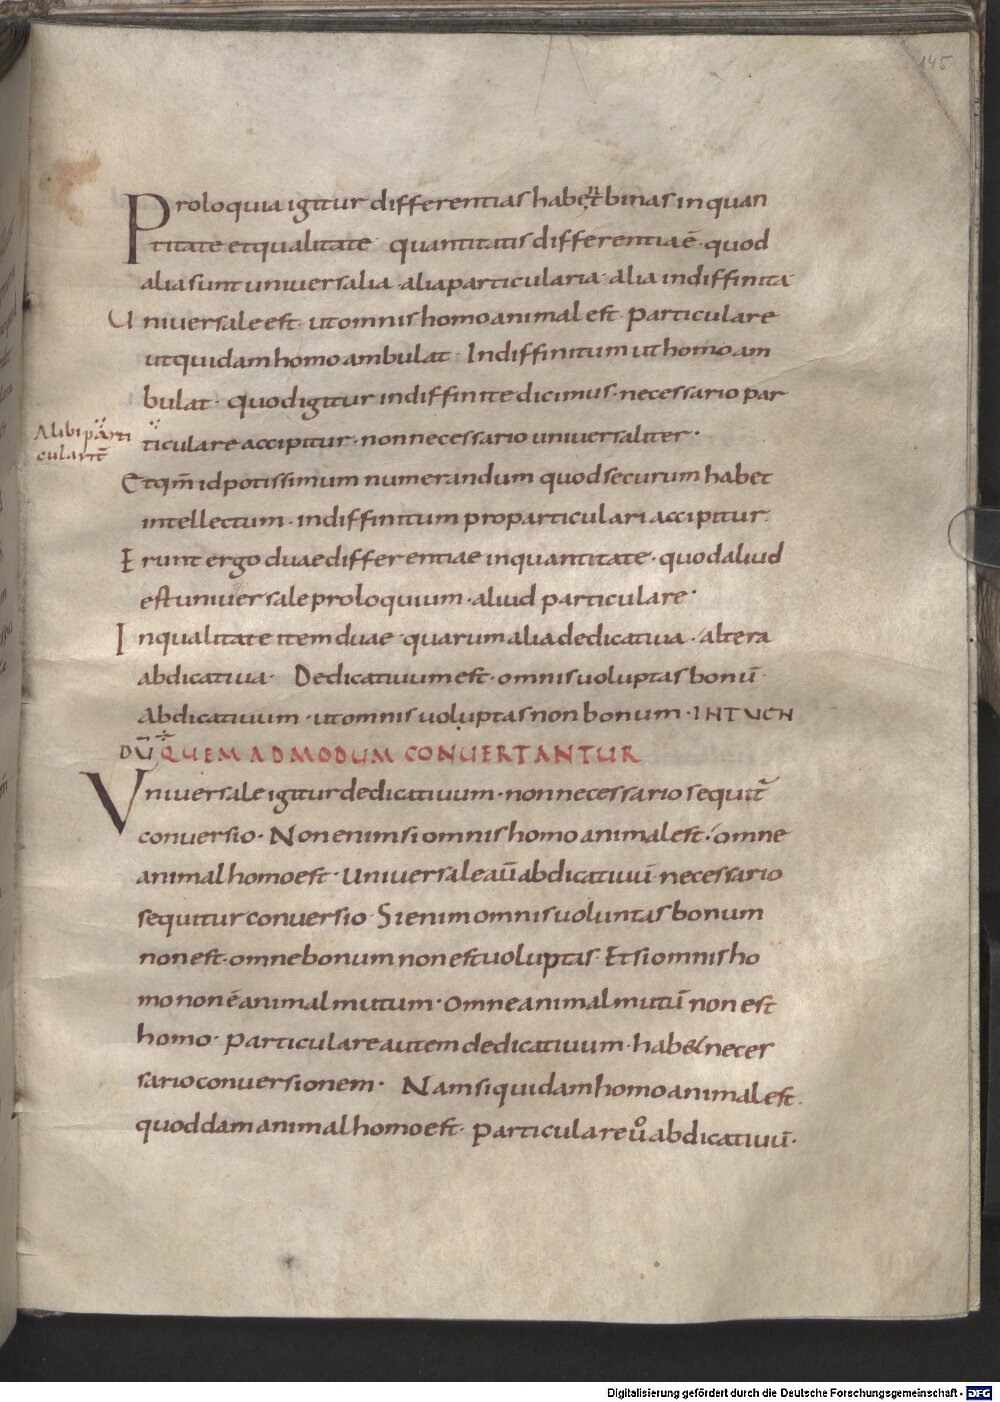 145
Proloquia igitur differentias habent binas in quan
titate et qualitate · quantitatis differentia ē · quod
alia sunt universalia · alia particularia · alia indiffinita
Universale est · ut omnis homo animal est · Particulare
ut quidam homo ambulat · Indiffinitum ut homo am
bulat · quod igitur indiffinite dicimus · necessario par
Alibi parti
cularit̄
ticulare accipitur · non necessario universaliter ·
Et qm̄ id potissimum numerandum quod securum habet
intellectum · indiffinitum pro particulari accipitur ·
Erunt ergo duae differentiae in quantitate · quod aliud
est universale proloquium · aliud particulare ·
In qualitate item duae · quarum alia dedicativa · altera
abdicativa · Dedicativum est · omnis voluptas bonū ·
Abdicativum · ut omnis voluptas non bonum · INTUEN
DŪ ÷ QUEMADMODUM CONVERTANTUR
Universale igitur dedicativum · non necessario sequit̄
conversio · Non enim si omnis homo animal est · omne
animal homo est · Universale aū abdicativū · necessario
sequitur conversio · Si enim omnis voluntas bonum
non est · omne bonum non est voluptas · Et si omnis ho
mo non ē animal mutum · Omne animal mutū non est
homo · Particulare autem dedicativum · hab& neces
sario conversionem · Nam si quidam homo animal est ·
quoddam animal homo est · Particulare uͦ abdicativū ·
Digitalisierung gefördert durch die Deutsche Forschungsgemeinschaft - DFG